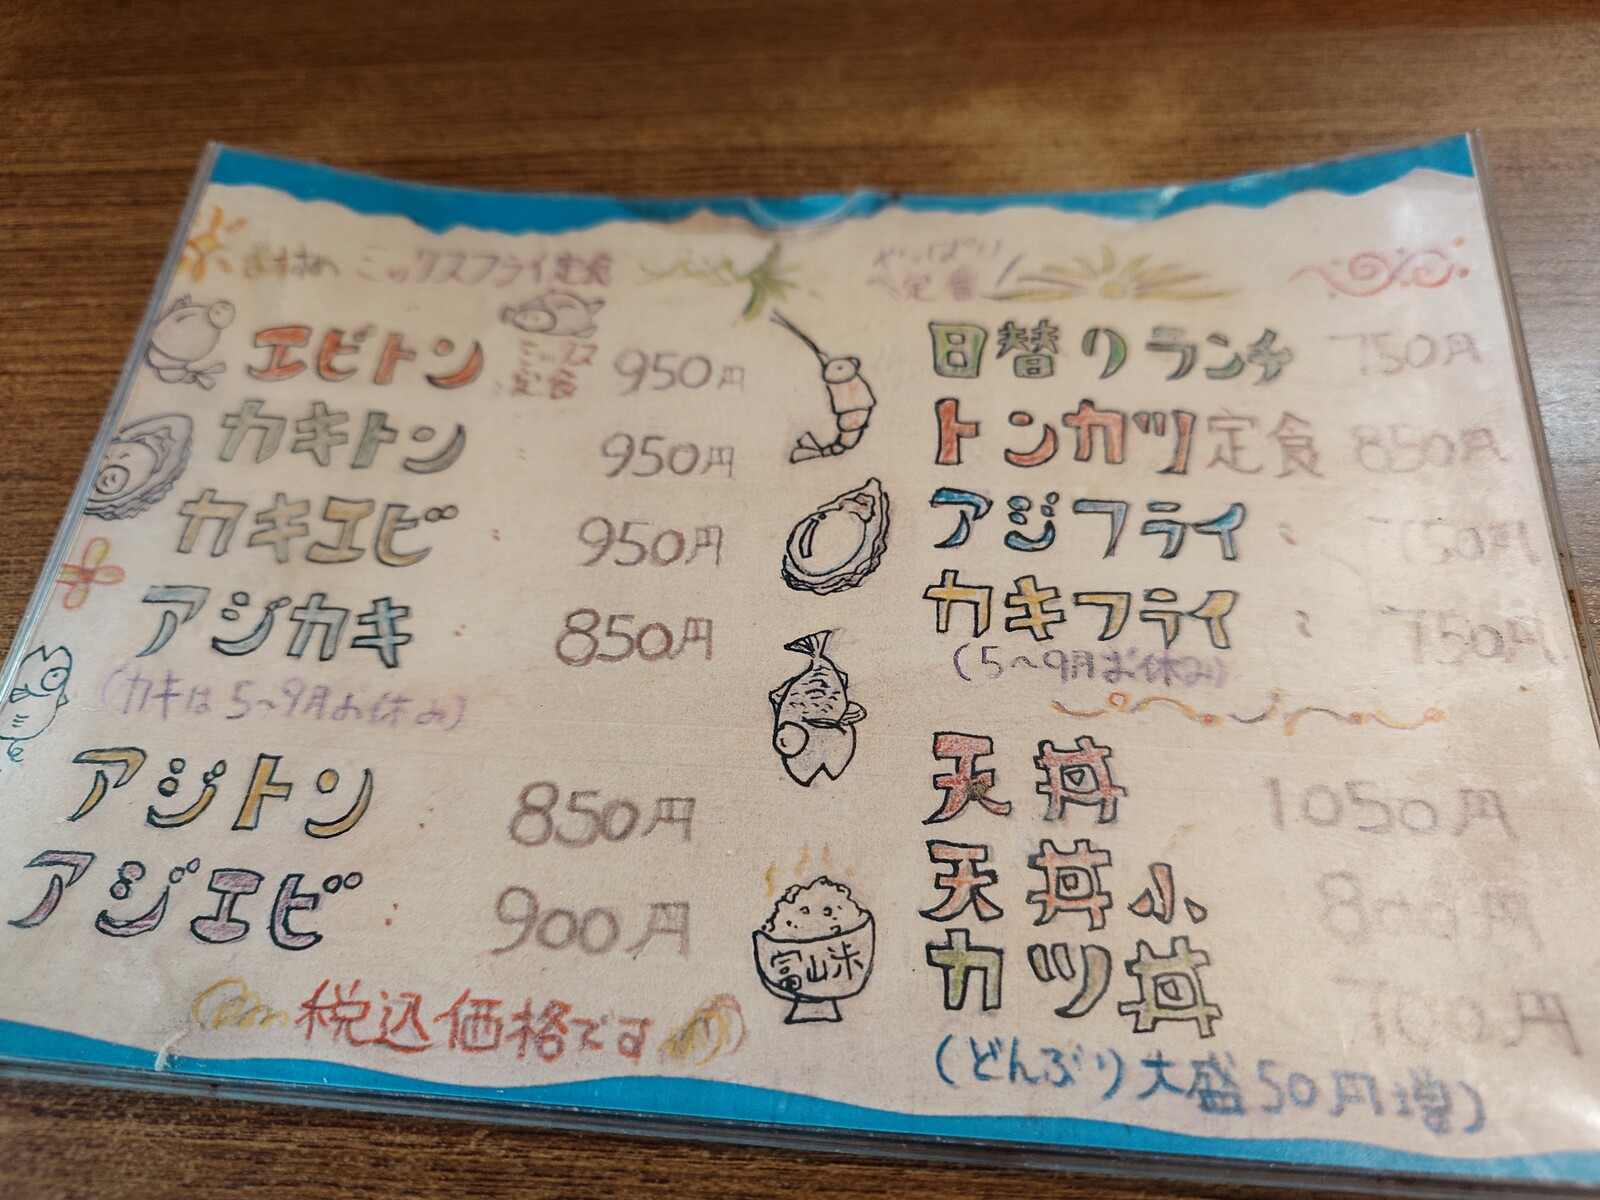 ミックスフライ定食
エビトン ミックス定食 950円
カキトン 〃 950円
カキエビ 〃 950円
アジカキ 〃 850円
(カキは5~9月お休み)
アジトン 〃 850円
アジエビ 〃 900円
税込価格です
富山米
やっぱり
定番
日替りランチ 750円
トンカツ定食 850円
アジフライ 〃 750円
カキフライ 〃 750円
(5~9月お休み)
天丼 1050円
天丼小 800円
カツ丼 700円
(どんぶり大盛50円増)